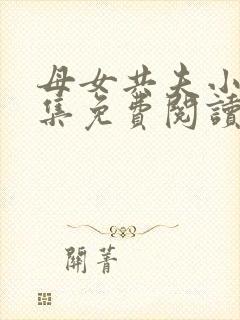 母女共夫小
集免費閱讀
關菁